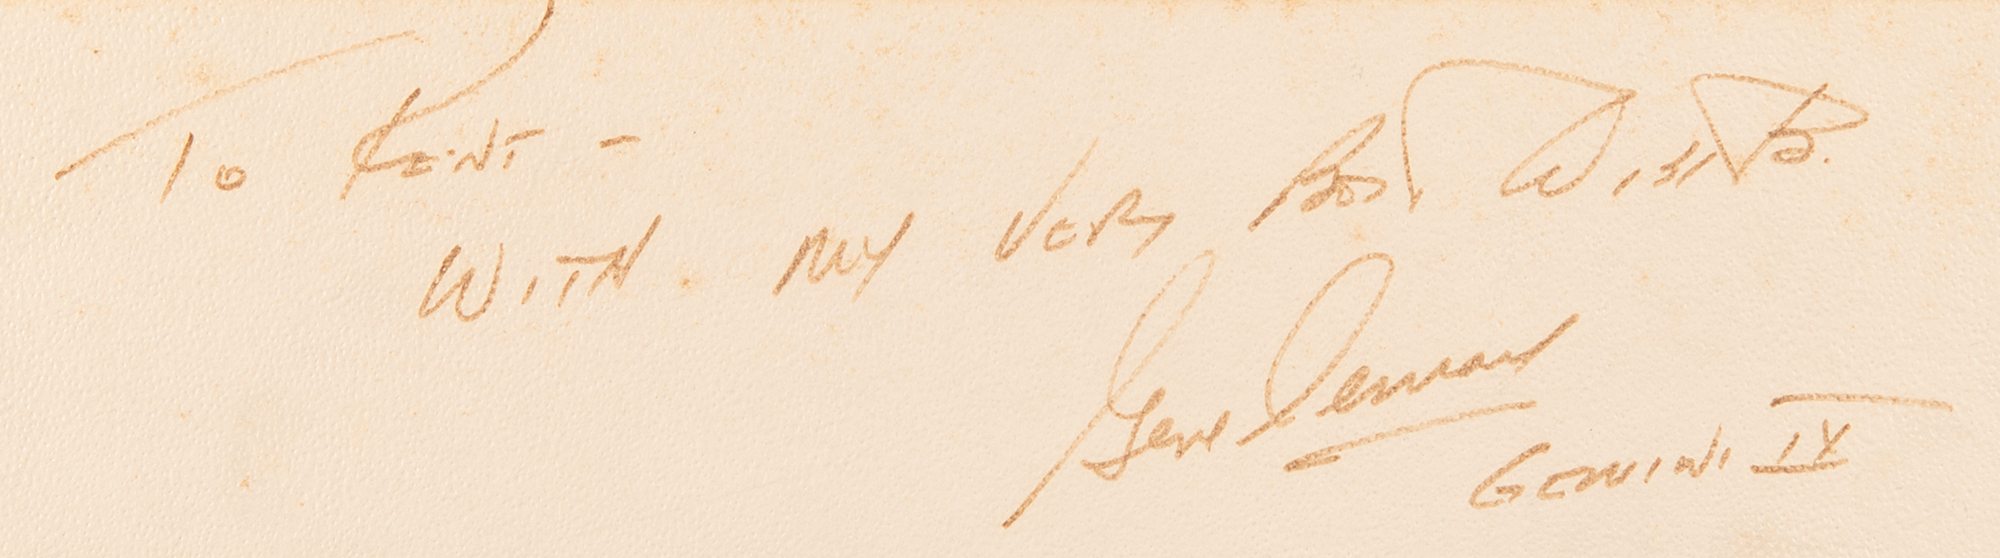 To Kent -
With my very Best Wishes.
Gene Cernan
Gemini IX